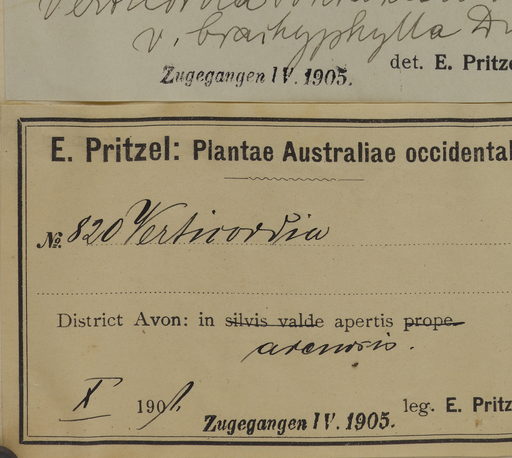 Verticordia
v. brachyphylla D
det. E. Pritze
Zugegangen IV. 1905.
E. Pritzel: Plantae Australiae occidental
No. 820 Verticordia
District Avon: in silvis valde apertis prope
arenosis.
X 1901.
Zugegangen IV. 1905.
leg. E. Pritz